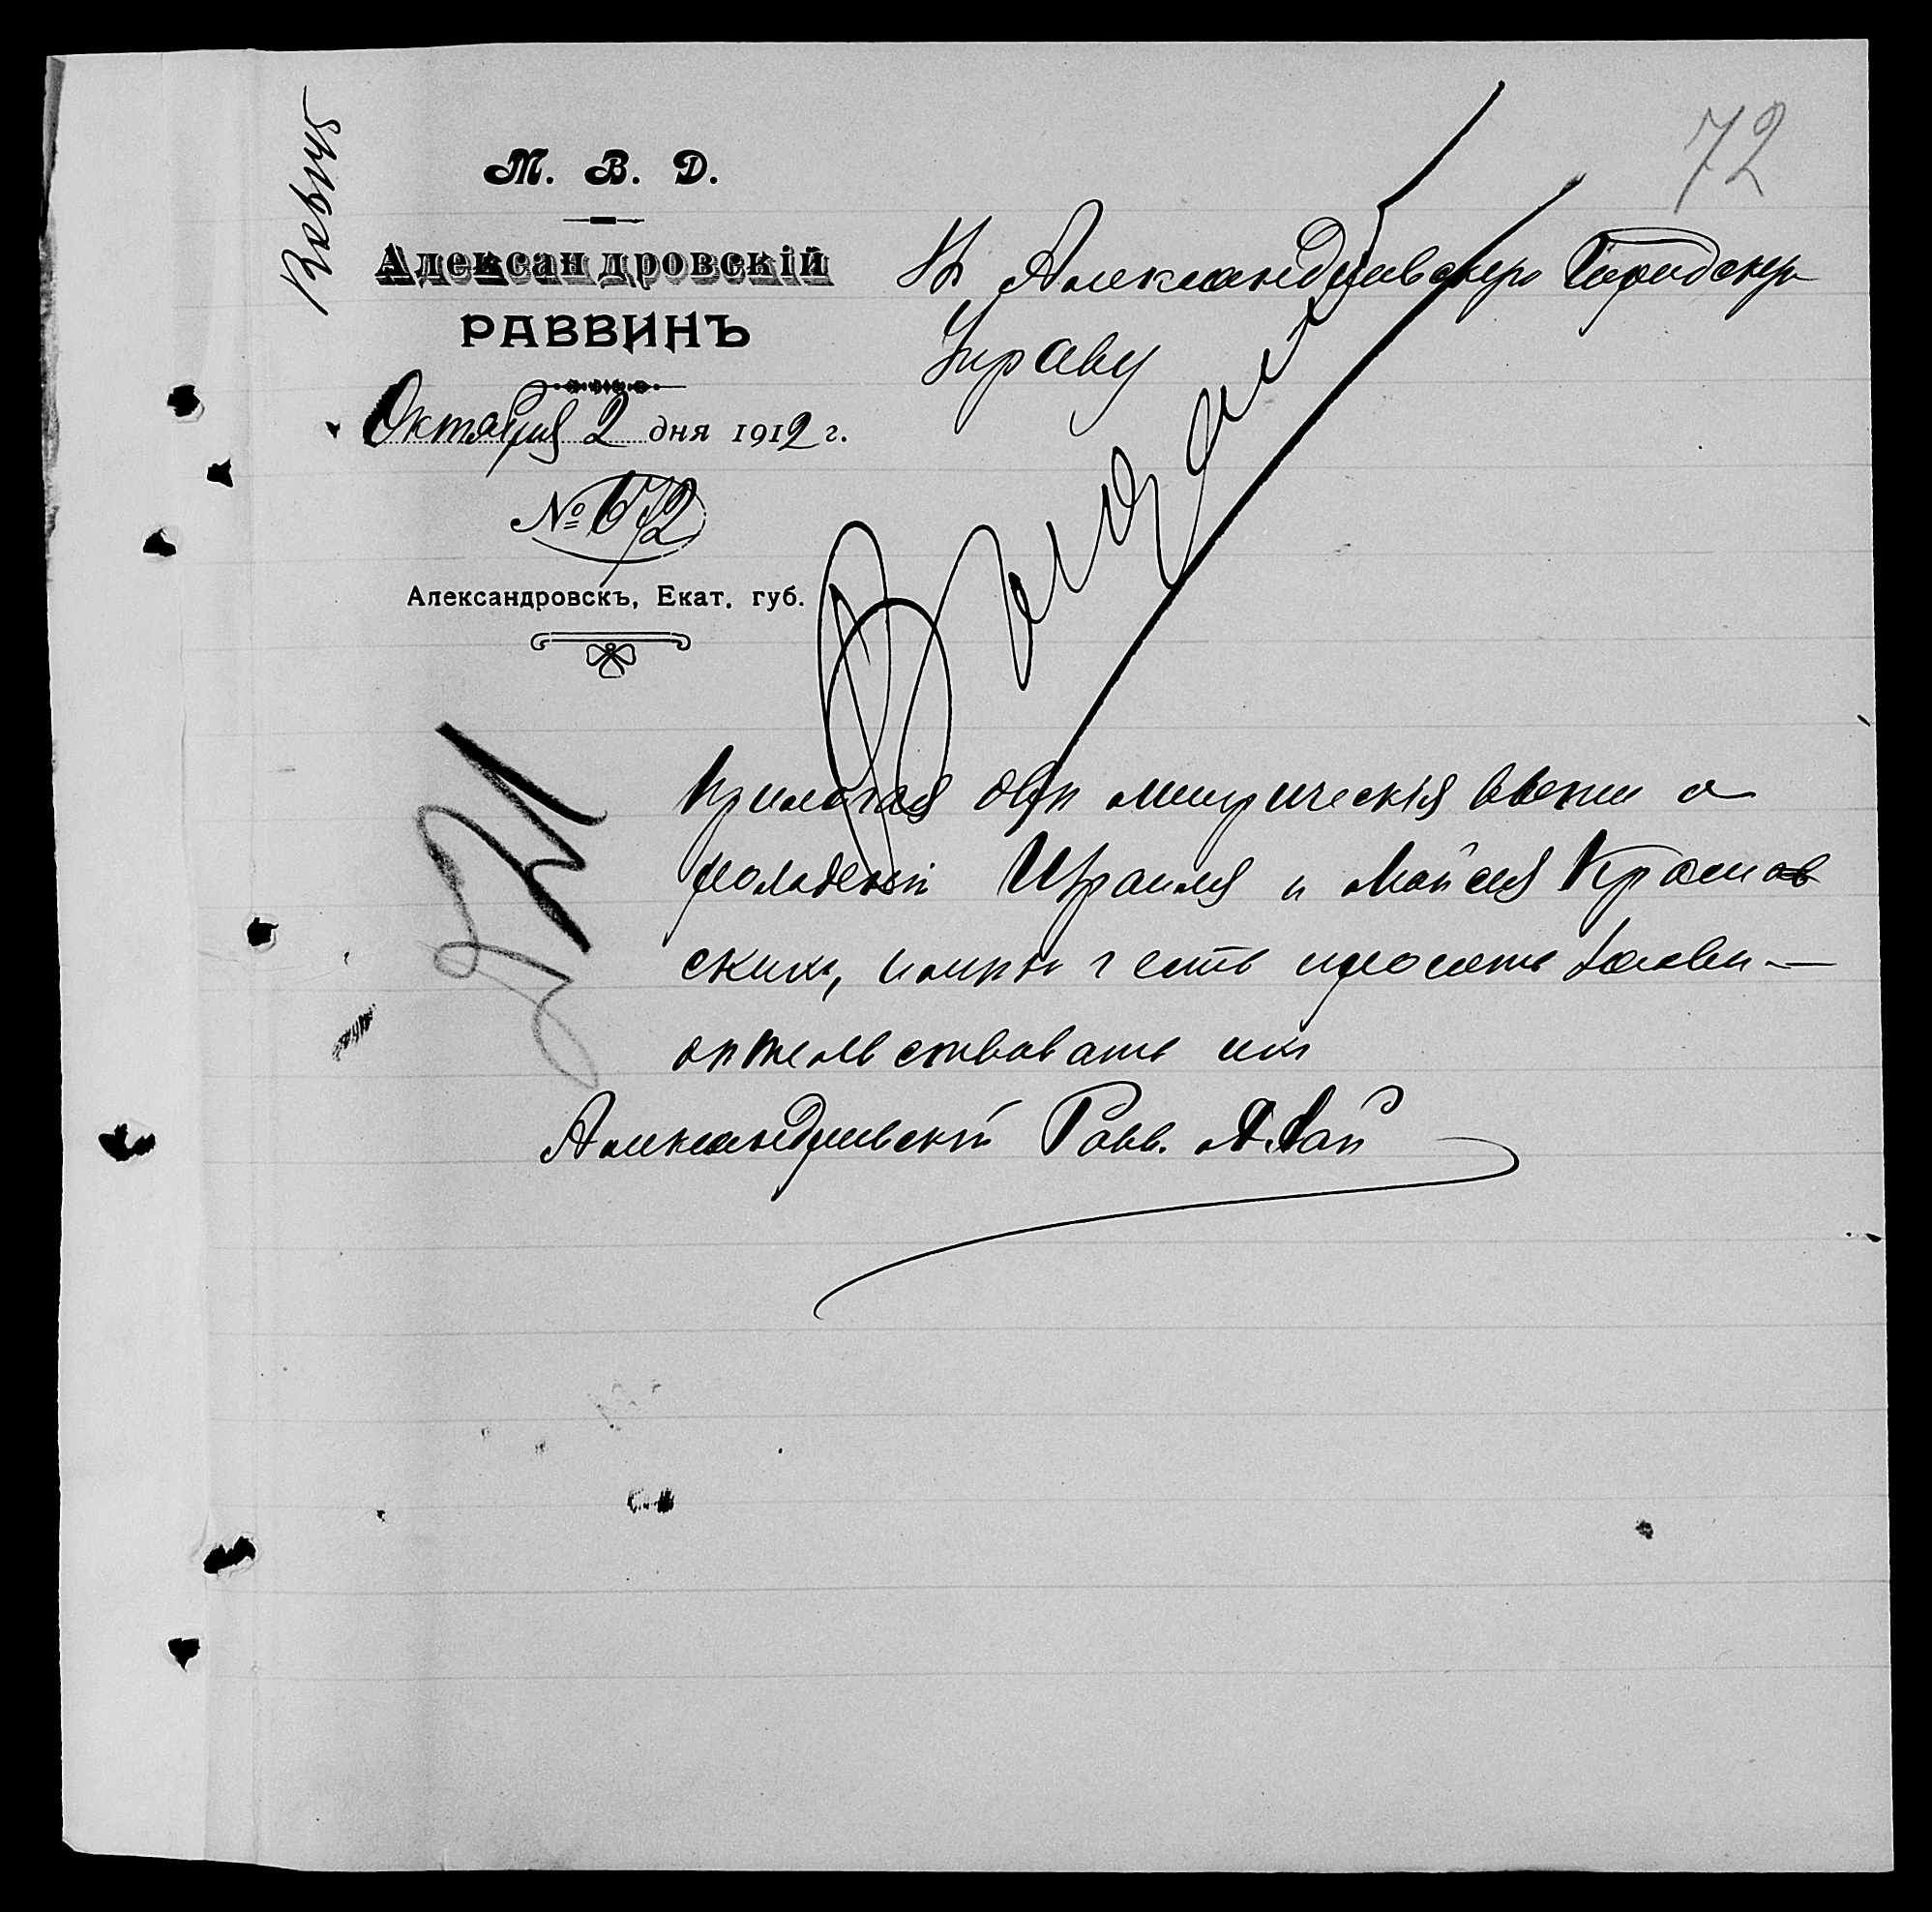 72
М. В. Д.
Александровскій
РАВВИНЪ
Октября 2 дня 1912 г.
№ 672
Александровскъ, Екат. губ.
Въ Александровскую Городскую
Управу
Прилагая две метрическія
рожденіи Израиля и Мойсея
скихъ, имѣю честь просить засви-
дѣтельствовать ихъ
Александровскій Равв.